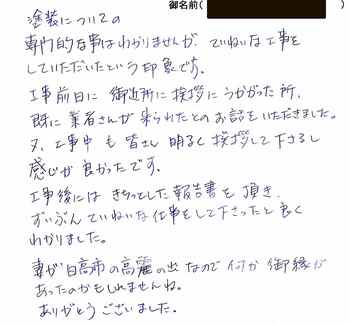 御名前( )
塗装についての
専門的な事はわかりませんが、ていねいな工事を
していただいたという印象です。
工事前日に 御近所に挨拶にうかがった所、
既に業者さんが来られたとのお話をいただきました。
又、工事中も皆さん明るく挨拶して下さるし
感じが良かったです。
工事後には きちっとした報告書を頂き、
ずいぶんていねいな仕事をして下さったと良く
わかりました。
妻が日高市の高麗の出なので何か御縁が
あったのかもしれませんね。
ありがとうございました。